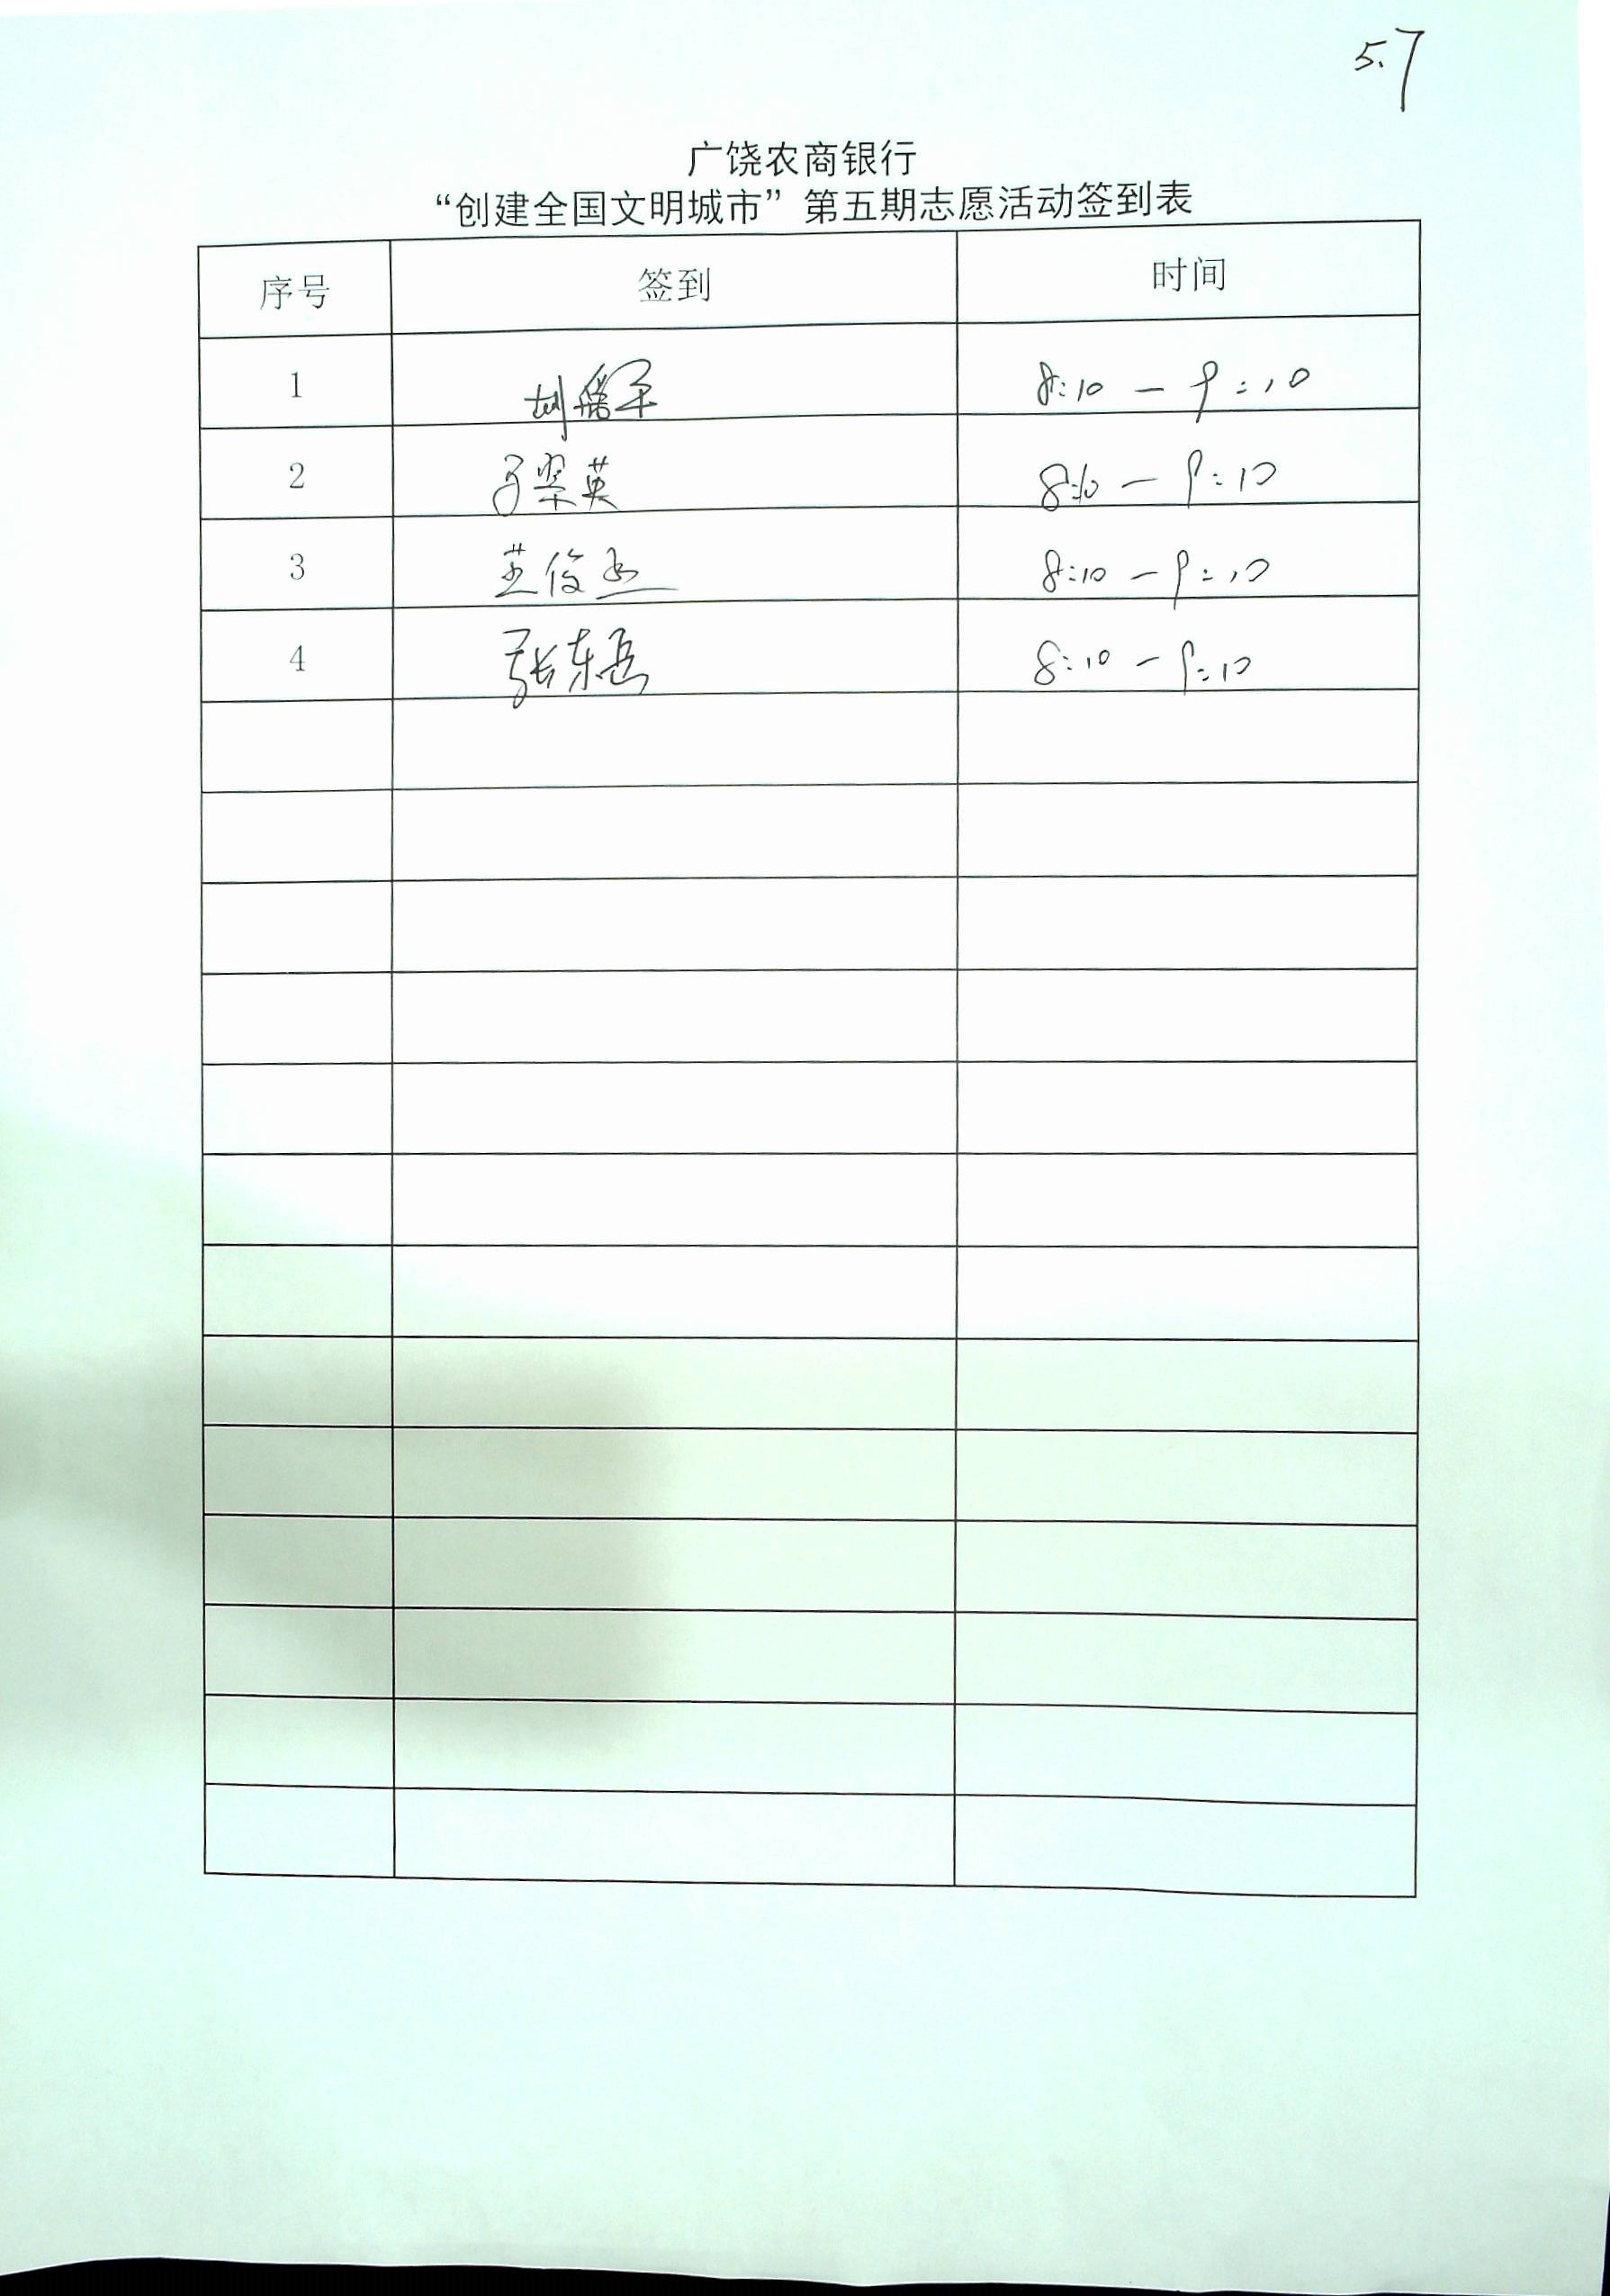 5.7
广饶农商银行
“创建全国文明城市”第五期志愿活动签到表
序号 签到 时间
1 8:10 — 9:10
2 8:10 — 9:10
3 8:10 — 9:10
4 张东岳 8:10 — 9:10